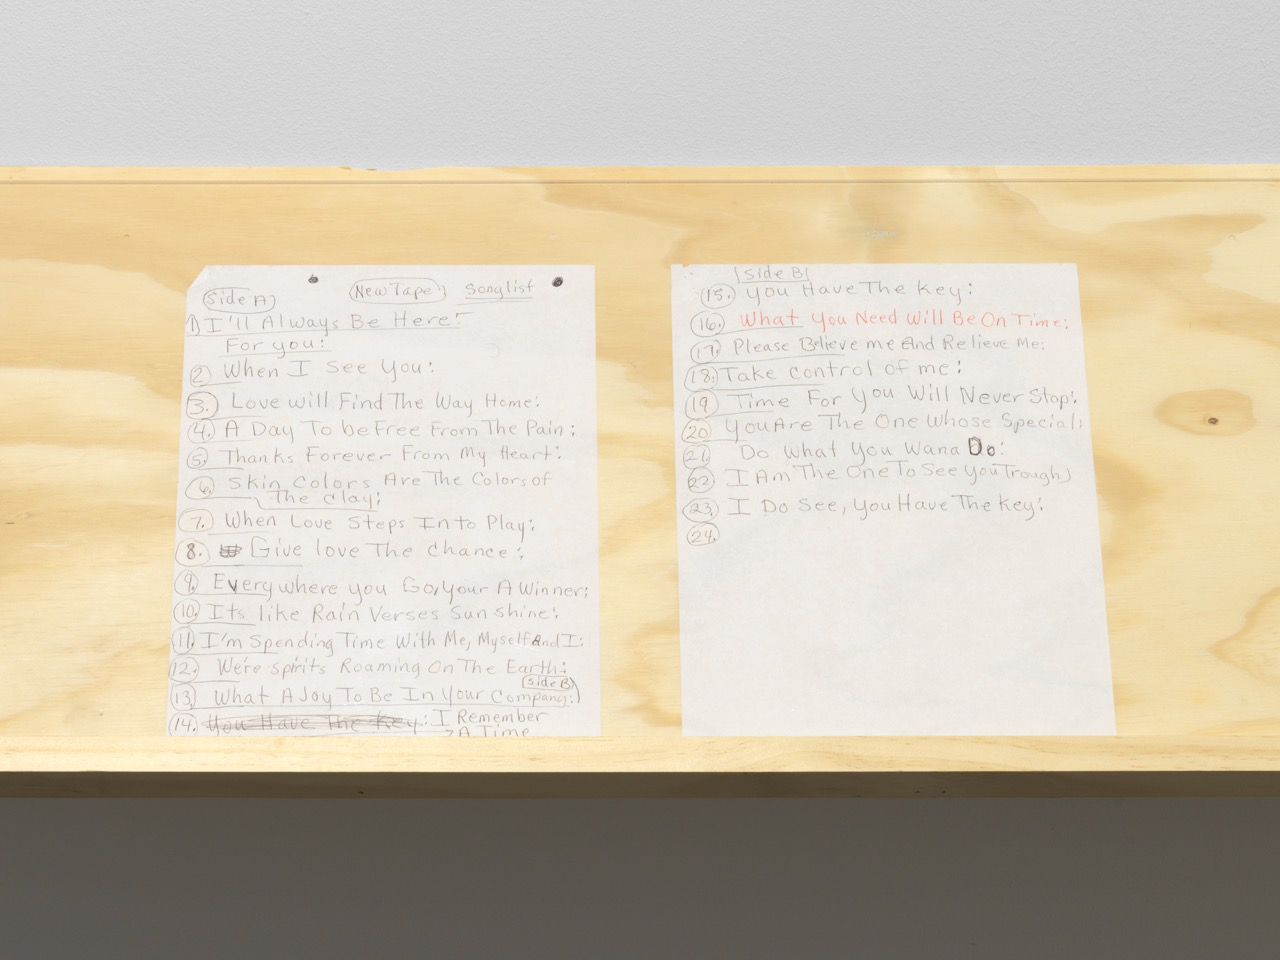 Side A New Tape Songlist
1) I'll Always Be Here!
For you:
2 When I See You:
3. Love will Find The Way Home:
4. A Day To be Free From The Pain:
5. Thanks Forever From My Heart:
6. Skin Colors Are The Colors of
The Clay:
7. When Love Steps Into Play:
8. Give love The chance:
9. Everywhere you Go, your A Winner:
10. Its like Rain Verses Sunshine:
11. I'm Spending Time With Me, Myself And I:
12. We're spirits Roaming On The Earth:
Side B
13) What A Joy To Be In Your Company:)
14. You Have The Key: I Remember
A Time
Side B
15. You Have The Key:
16. What You Need Will Be On Time:
17. Please Believe me And Relieve Me:
18. Take control of me:
19 Time For You Will Never Stop:
20 You Are The One Whose Special:
21. Do What You Wana Do:
22. I Am The One To See you Trough)
23. I Do See, you Have The Key:
24.